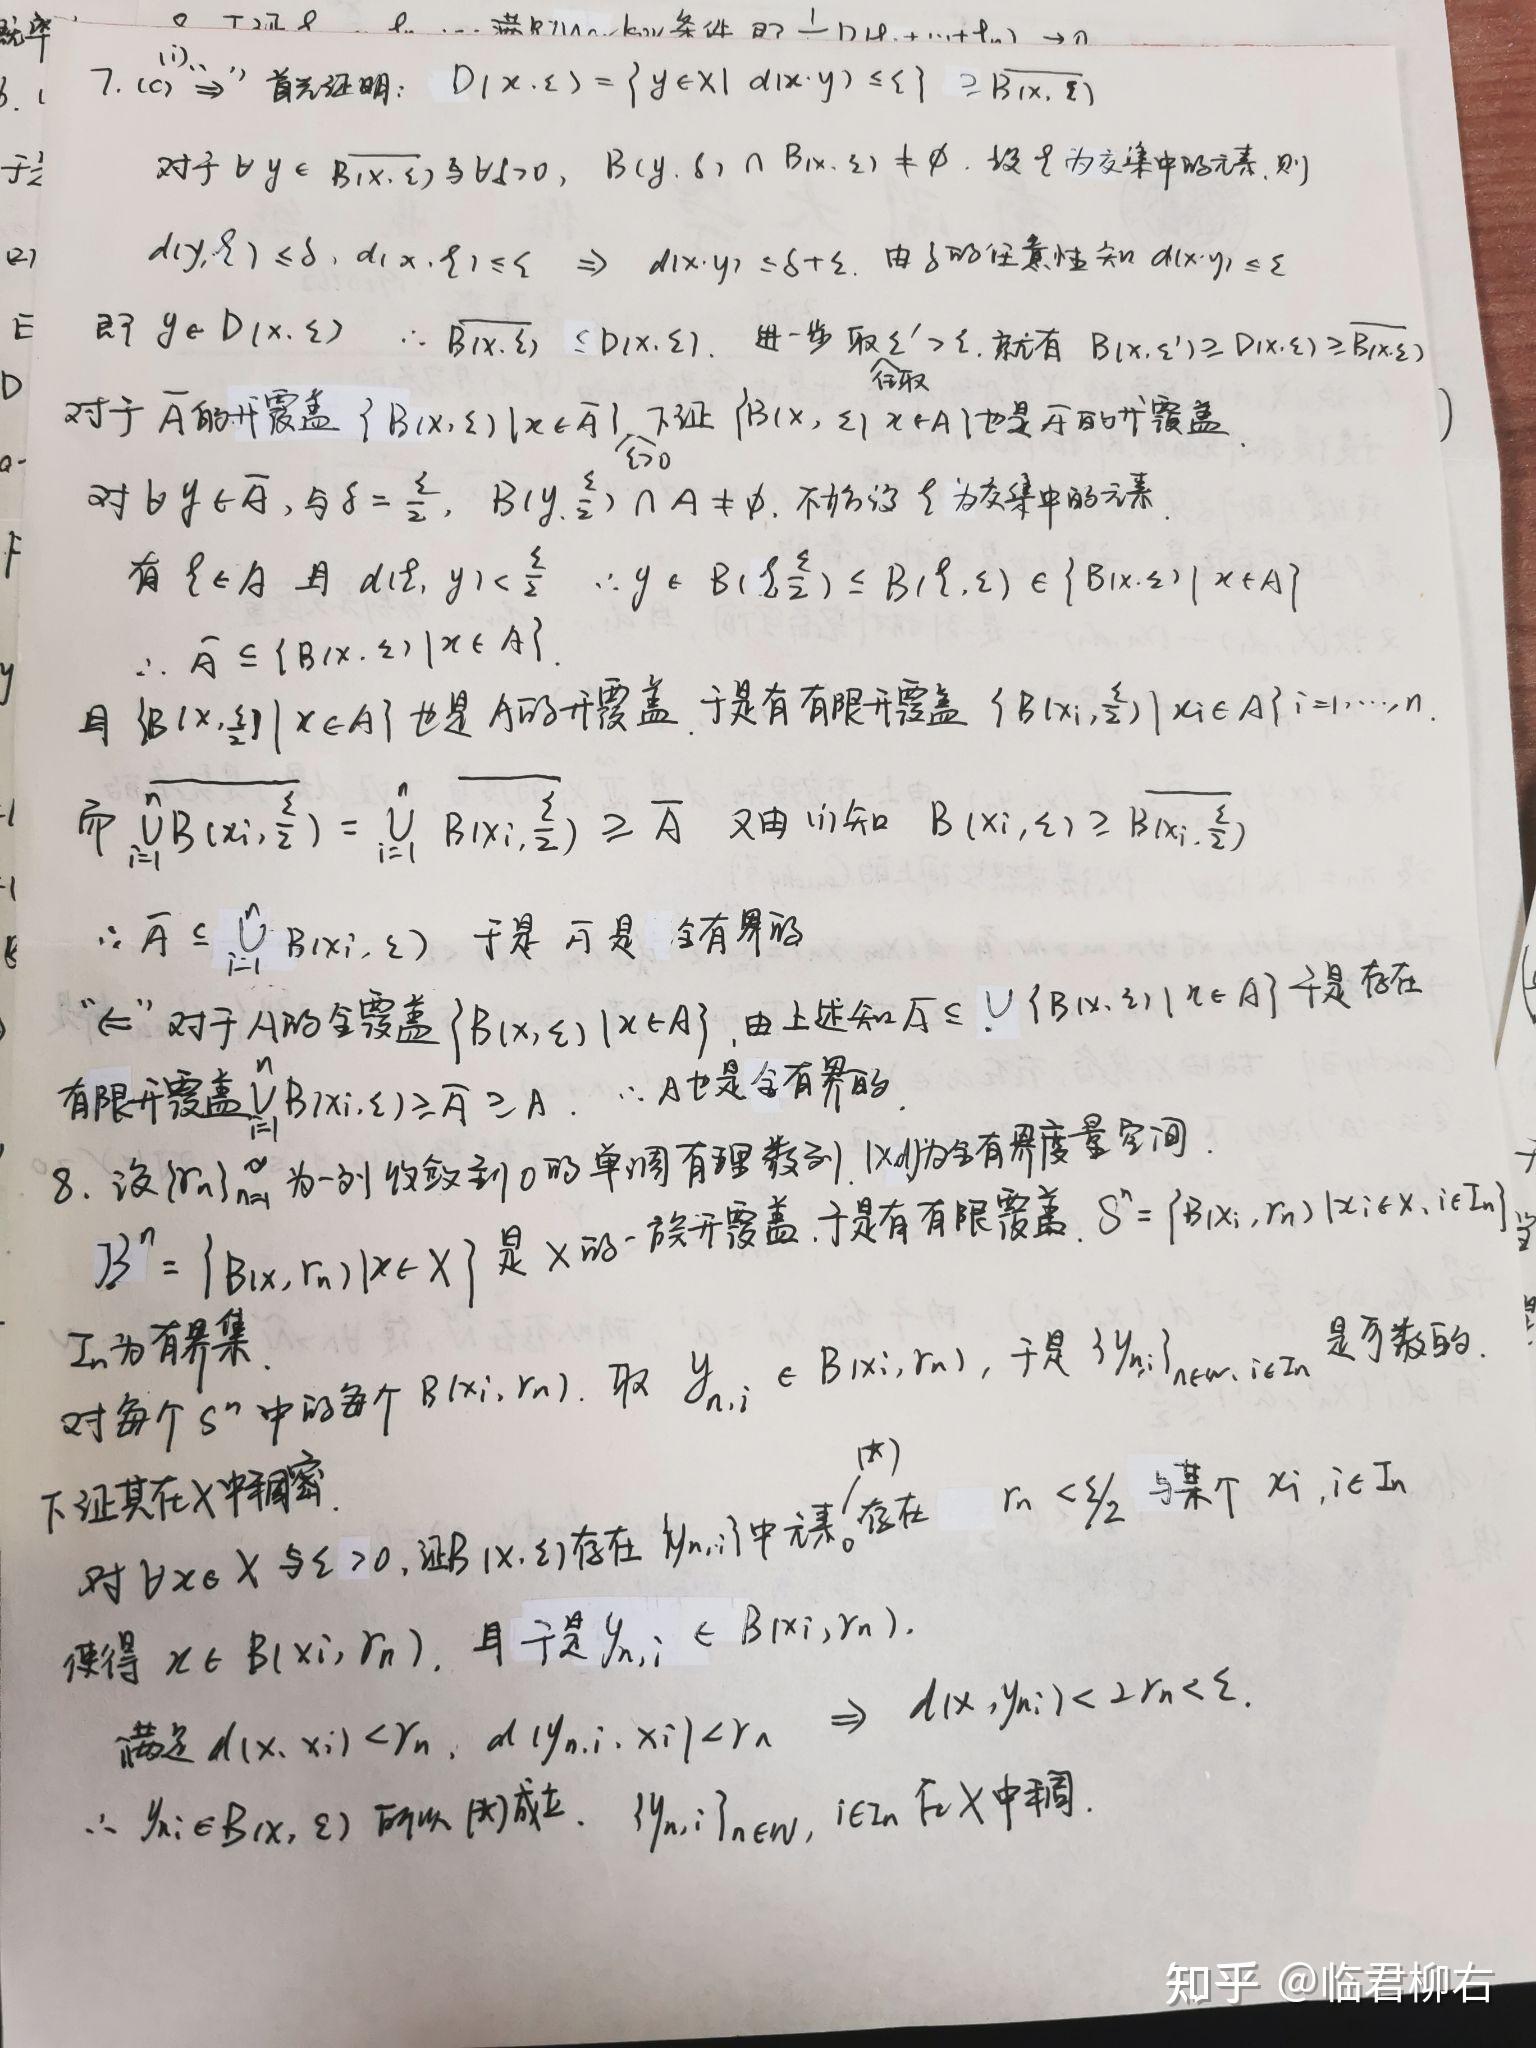 7.(c) (i) "⇒" 首先证明: D(x.ε) = {y∈X| d(x.y) ≤ε} ⊇ \overline{B(x,ε)}
对于∀y∈ \overline{B(x.ε)} 与∀δ>0, B(y.δ) ∩ B(x.ε) ≠ ∅. 设ξ为交集中的元素.则
d(y,ξ) ≤δ, d(x.ξ) ≤ε ⇒ d(x.y) ≤δ+ε. 由δ的任意性知 d(x.y) ≤ε
即 y∈D(x.ε) ∴ \overline{B(x.ε)} ⊆D(x.ε). 进一步取ε'>ε.就有 B(x,ε')⊇D(x.ε)⊇\overline{B(x.ε)}
任取
对于 \overline{A} 的开覆盖 {B(x,ε)|x∈\overline{A}} 下证 {B(x,ε| x∈A}也是\overline{A}的开覆盖.
ε>0
对∀y∈\overline{A},与δ=ε/2, B(y.ε/2)∩A≠∅. 不妨设ξ为交集中的元素.
有 ξ∈A 且 d(ξ,y)<ε/2 ∴y∈B(ξ,ε/2)⊆B(ξ,ε)∈{B(x.ε)|x∈A}
∴ \overline{A} ⊆{B(x.ε)|x∈A}.
且 {B(x,ε/2)|x∈A}也是A的开覆盖.于是有有限开覆盖 {B(xi,ε/2)|xi∈A} i=1,⋯,n.
而 \overline{⋃_{i=1}^{n}B(xi,ε/2)} = ⋃_{i=1}^{n} \overline{B(xi,ε/2)} ⊇ \overline{A} 又由(i)知 B(xi,ε)⊇\overline{B(xi.ε/2)}
∴ \overline{A} ⊆ ⋃_{i=1}^{n} B(xi,ε) 于是 \overline{A} 是 全有界的
"⇐" 对于A的全覆盖{B(x,ε)|x∈A},由上述知\overline{A}⊆ ⋃{B(x.ε)|x∈A}于是存在
有限开覆盖⋃_{i=1}^{n}B(xi,ε)⊇\overline{A}⊇A. ∴A也是全有界的.
8. 设{rn}_{n=1}^{∞}为一列收敛到0的单调有理数列.(x.d)为全有界度量空间.
B^n={B(x,rn)|x∈X}是X的一族开覆盖.于是有有限覆盖. S^n={B(xi,rn)|xi∈X,i∈In}
In为有界集.
对每个S^n中的每个B(xi,rn).取 y_{n,i}∈B(xi,rn),于是{y_{n,i}}_{n∈N,i∈In}是可数的.
下证其在X中稠密.
(*)
对∀x∈X与ε>0,证B(x.ε)存在{y_{n,i}}中元素。存在 rn<ε/2 与某个 xi,i∈In
使得 x∈B(xi,rn). 且于是y_{n,i}∈B(xi,rn).
满足d(x.xi)<rn. d(y_{n,i}.xi)<rn ⇒ d(x,y_{ni})<2rn<ε.
∴ y_{ni}∈B(x,ε) 所以(*)成立. {y_{n,i}}_{n∈N, i∈In}在X中稠.
知乎 @临君柳右